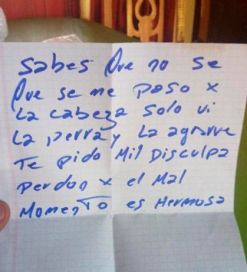 Sabes Que no se
Que se me paso x
La cabeza solo vi
La perra y La agarre
Te pido Mil Disculpa
Perdon x el Mal
Momento es Hermosa